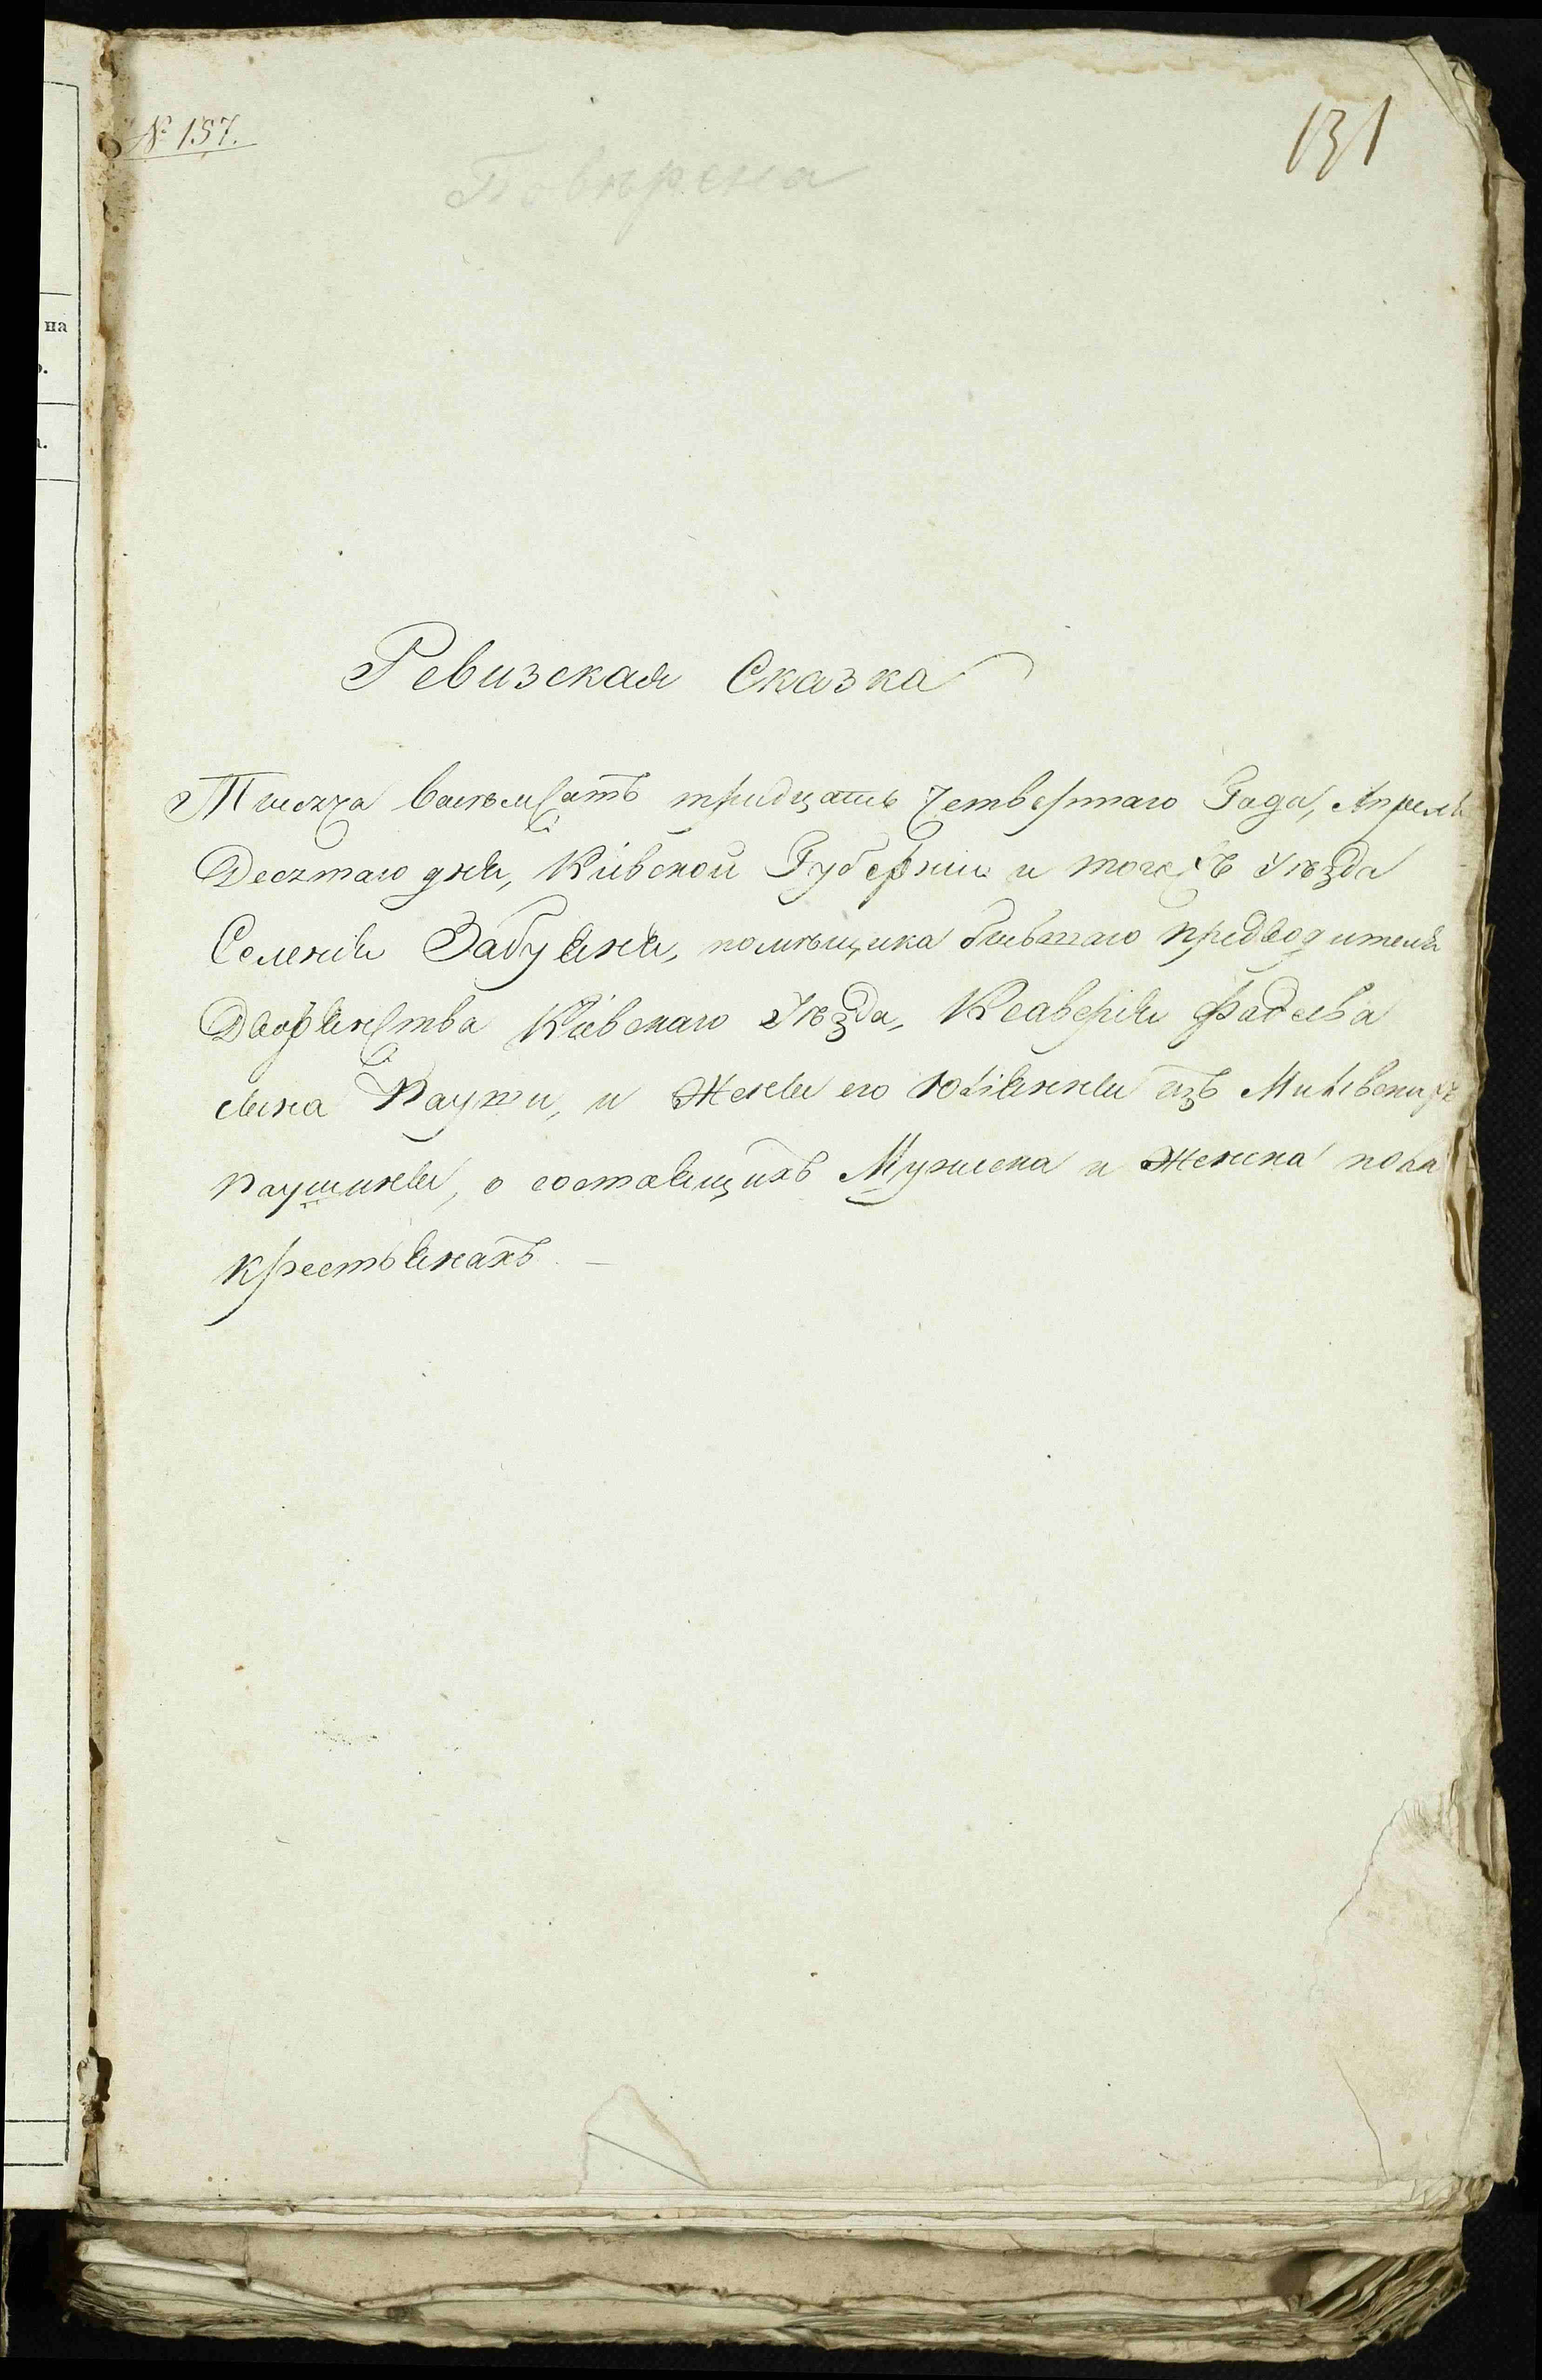 № 157.
131
Повѣрена
на
Ревизская Сказка
Тысяча восемъсотъ тридцать Четвертаго Года, Апреля
Десятаго дня, Кіевской Губерніи и тогожъ Уѣзда
Селенія Забуяня, помѣщика бывшаго предводителя
Дворянства Кіевскаго Уѣзда, Ксаверія Фадѣева
сына Рауши, и Жены его Юліянны изъ
Раушины, о состоящихъ Мужеска и Женска пола
крестьянахъ. —